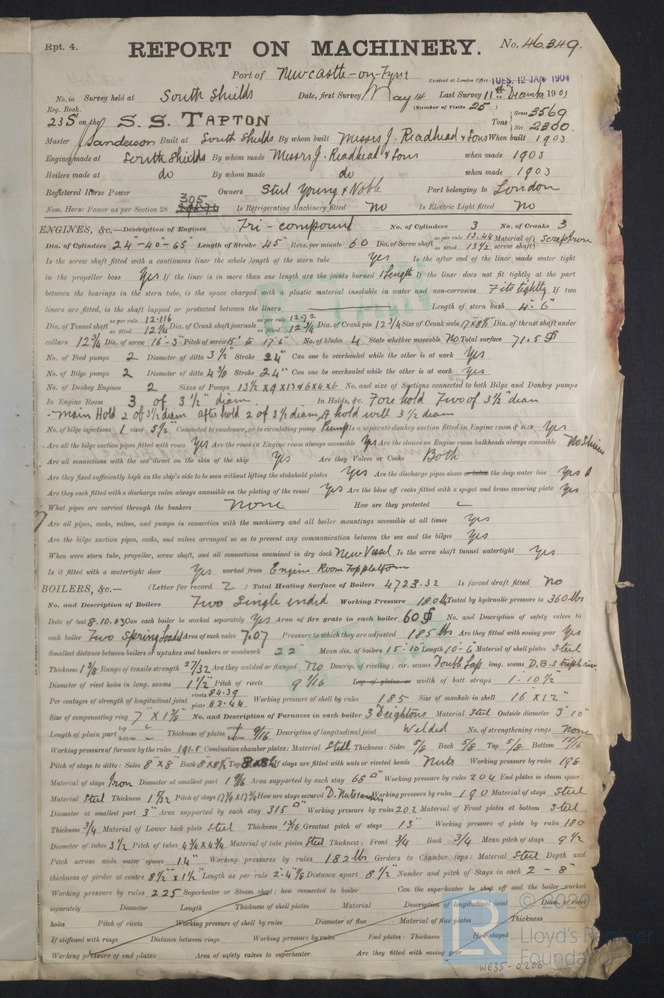 Rpt. 4. REPORT ON MACHINERY. No. 46349.
Port of Newcastle-on-Tyne Received at London Office TUES. 12 JAN 1904
No. in Survey held at South Shields Date, first Survey May 14 Last Survey 11th December 1903
Reg. Book. (Number of Visits 25)
235 on the S. S. TAPTON Tons Gross 3569 Net 2300
Master Sanderson Built at South Shields By whom built Messrs J. Readhead & Sons When built 1903
Engines made at South Shields By whom made Messrs J. Readhead & Sons when made 1903
Boilers made at do By whom made do when made 1903
Registered Horse Power Owners Steel Young & Noble Port belonging to London
Nom. Horse Power as per Section 28 305 Is Refrigerating Machinery fitted No Is Electric Light fitted No
ENGINES, &c.—Description of Engines Tri-compound No. of Cylinders 3 No. of Cranks 3
Dia. of Cylinders 24-40-65 Length of Stroke 45" Revs. per minute 60 Dia. of Screw shaft as per rule 13.46 as fitted 13 1/2 Material of screw shaft Scrap Iron
Is the screw shaft fitted with a continuous liner the whole length of the stern tube Yes Is the after end of the liner made water tight
in the propeller boss Yes If the liner is in more than one length are the joints burned 1 Length If the liner does not fit tightly at the part
between the bearings in the stern tube, is the space charged with a plastic material insoluble in water and non-corrosive Fits tightly If two
liners are fitted, is the shaft lapped or protected between the liners Length of stern bush 4'-6"
Dia. of Tunnel shaft as per rule 12.116 as fitted 12 1/4 Dia. of Crank shaft journals as per rule 12.72 as fitted 12 3/4 Dia. of Crank pin 12 3/4 Size of Crank webs 17x8 1/2 Dia. of thrust shaft under
collars 12 3/4 Dia. of screw 16'-3" Pitch of screw 15'-6" 17'-6" No. of blades 4 State whether moveable No Total surface 71.5
No. of Feed pumps 2 Diameter of ditto 3 1/2 Stroke 24" Can one be overhauled while the other is at work Yes
No. of Bilge pumps 2 Diameter of ditto Stroke 24" Can one be overhauled while the other is at work Yes
No. of Donkey Engines 2 Sizes of Pumps No. and size of Suctions connected to both Bilge and Donkey pumps
In Engine Room 3 of 3 1/2" diam. In Holds, &c. Fore hold Two of 3 1/2" diam
Main Hold 2 of 3 1/2 diam after hold 2 of 3 1/2 diam, A hold well 3 1/2 diam
No. of bilge injections 1 sizes 5 1/2" Connected to condenser, or to circulating pump Pump Is a separate donkey suction fitted in Engine room & size Yes
Are all the bilge suction pipes fitted with roses Yes Are the roses in Engine room always accessible Yes Are the sluices on Engine room bulkheads always accessible No Sluices
Are all connections with the sea direct on the skin of the ship Yes Are they Valves or Cocks Both
Are they fixed sufficiently high on the ship's side to be seen without lifting the stokehold plates Yes Are the discharge pipes above or below the deep water line Yes
Are they each fitted with a discharge valve always accessible on the plating of the vessel Yes Are the blow off cocks fitted with a spigot and brass covering plate Yes
What pipes are carried through the bunkers None How are they protected
Are all pipes, cocks, valves, and pumps in connection with the machinery and all boiler mountings accessible at all times Yes
Are the bilge suction pipes, cocks, and valves arranged so as to prevent any communication between the sea and the bilges Yes
When were stern tube, propeller, screw shaft, and all connections examined in dry dock New Vessel Is the screw shaft tunnel watertight Yes
Is it fitted with a watertight door Yes worked from Engine Room Top platform
BOILERS, &c.— (Letter for record Z) Total Heating Surface of Boilers 4723.32 Is forced draft fitted No
No. and Description of Boilers Two Single ended Working Pressure 180 lb Tested by hydraulic pressure to 360 lbs
Date of test 8.10.03 Can each boiler be worked separately Yes Area of fire grate in each boiler 60 No. and Description of safety valves to
each boiler Two Spring Loaded Area of each valve 7.07 Pressure to which they are adjusted 185 lbs Are they fitted with easing gear Yes
Smallest distance between boilers or uptakes and bunkers or woodwork 22 Mean dia. of boilers 15-10" Length 10-6" Material of shell plates Steel
Thickness 1 3/8 Range of tensile strength 27/32 Are they welded or flanged No Descrip. of riveting: cir. seams Double Lap long. seams D.B.S treble riv.
Diameter of rivet holes in long. seams 1 1/2" Pitch of rivets 9 9/16 Lap of plates or width of butt straps 1-10 1/2
Per centages of strength of longitudinal joint rivets 84.39 plate 83.44 Working pressure of shell by rules 185 Size of manhole in shell 16 x 12"
Size of compensating ring 7" x 1 3/8 No. and Description of Furnaces in each boiler 3 Deightons Material Steel Outside diameter 3' 10"
Length of plain part top bottom Thickness of plates 9/16 Description of longitudinal joint Welded No. of strengthening rings None
Working pressure of furnace by the rules 191.5 Combustion chamber plates: Material Steel Thickness: Sides 5/8 Back 5/8 Top 5/8 Bottom 15/16
Pitch of stays to ditto: Sides 8 x 8" Back 8 x 8 1/4 Top 8 x 8 1/2 If stays are fitted with nuts or riveted heads Nuts Working pressure by rules 198
Material of stays Iron Diameter at smallest part 1 9/16 Area supported by each stay 68" Working pressure by rules 204 End plates in steam space:
Material Steel Thickness 1 5/32 Pitch of stays How are stays secured D. Nuts & washers Working pressure by rules 190 Material of stays Steel
Diameter at smallest part 3" Area supported by each stay 315" Working pressure by rules 202 Material of Front plates at bottom Steel
Thickness 3/4 Material of Lower back plate Steel Thickness 13/16 Greatest pitch of stays 13" Working pressure of plate by rules 180
Diameter of tubes 3 1/2 Pitch of tubes 4 3/4 x 4 3/4 Material of tube plates Steel Thickness: Front 3/4 Back 3/4 Mean pitch of stays 9 1/2
Pitch across wide water spaces 14" Working pressures by rules 182 lbs Girders to Chamber tops: Material Steel Depth and
thickness of girder at centre 8 1/2" x 1 1/2" Length as per rule Distance apart 8 1/2 Number and pitch of Stays in each 2-8"
Working pressure by rules 225 Superheater or Steam chest; how connected to boiler Can the superheater be shut off and the boiler worked
separately Diameter Length Thickness of shell plates Material Description of longitudinal joint Diam. of rivet
holes Pitch of rivets Working pressure of shell by rules Diameter of flue Material of flue plates Thickness
If stiffened with rings Distance between rings Working pressure by rules End plates: Thickness How stayed
Working pressure of end plates Area of safety valves to superheater Are they fitted with easing gear
LR
© 2020
Lloyd's Register
Foundation
W635-0206